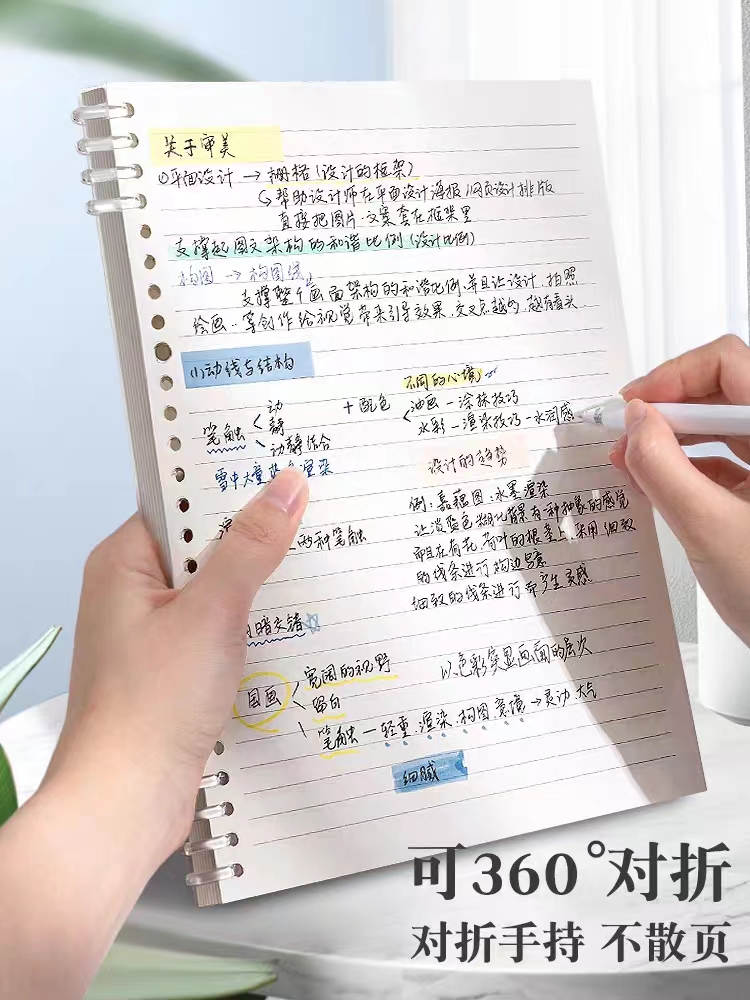 关于审美
①平面设计 → 栅格(设计的框架)
↳ 帮助设计师在平面设计海报、网页设计排版
直接把图片、文案套在框架里
支撑起图文架构的和谐比例(设计比例)
构图 → 构图线
支撑整个画面架构的和谐比例,并且让设计、拍照
绘画..等创作给视觉带来引导效果,交叉点越多,越有看头
(1)动线与结构
笔触 动 + 配色
静
动静结合
雪中大量
渲染
不同的心境
油画 — 涂抹技巧
水彩 — 渲染技巧 — 水润感
设计的趋势
例:嘉藕图:水墨渲染
让淡蓝色糊化背景有种抽象的感觉
而且在荷花、荷叶的根茎上,采用细致
的线条进行勾边
细致的线条进行
灵感
两种笔触
暗交错☆
国画 宽阔的视野
留白
笔触 — 轻重、渲染、构图、意境 → 灵动、大气
以色彩突显画面的层次
细腻
可360°对折
对折手持 不散页